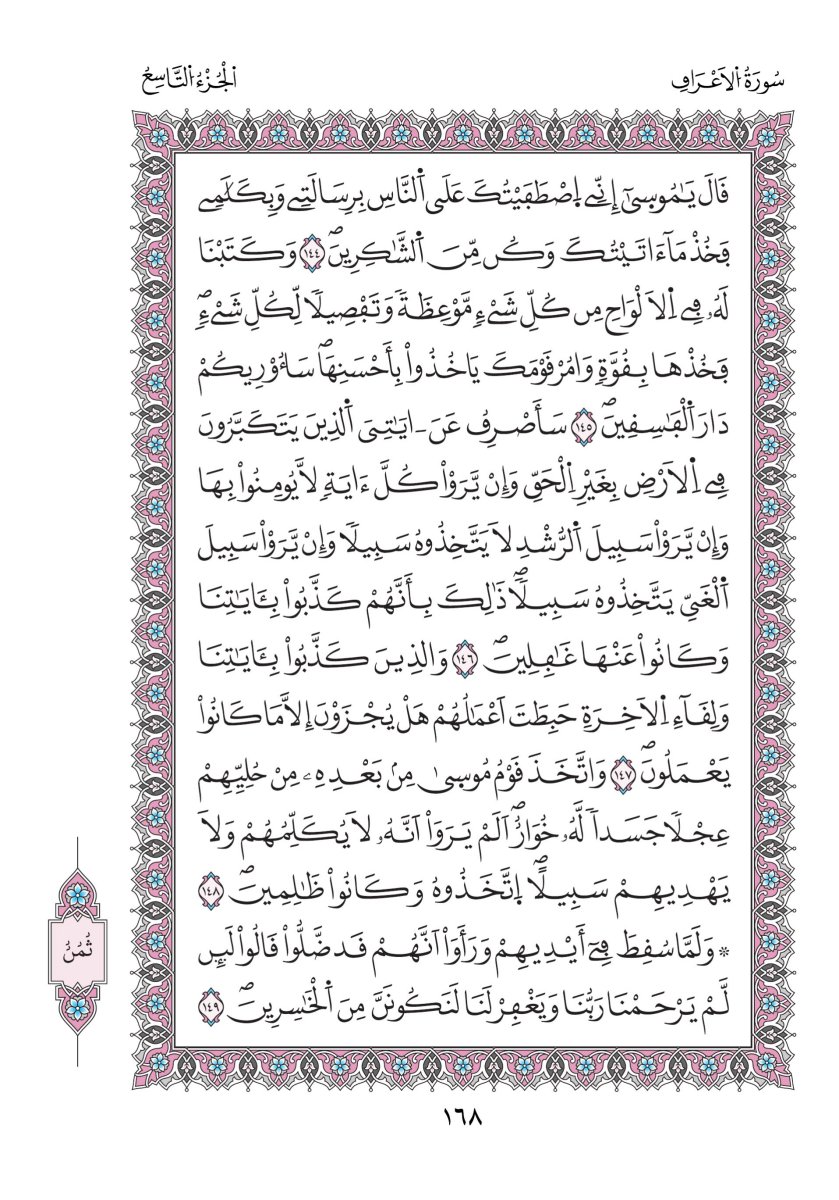 سُورَةُ اُ۬لَاعْرَافِ
اَ۬لْجُزْءُ اُ۬لتَّاسِعُ
قَالَ يَٰمُوس۪ىٰٓ إِنِّے اِ۪صْطَفَيْتُكَ عَلَي اَ۬لنَّاسِ بِرِسَالَتِے وَبِكَلَٰمِے
فَخُذْ مَآ ءَاتَيْتُكَ وَكُن مِّنَ اَ۬لشَّٰكِرِينَۖ ١٤٤ وَكَتَبْنَا
لَهُۥ فِے اِ۬لَالْوَاحِ مِن كُلِّ شَےْءٖ مَّوْعِظَةٗ وَتَفْصِيلاٗ لِّكُلِّ شَےْءٖۖ
فَخُذْهَا بِقُوَّةٖ وَامُرْ قَوْمَكَ يَاخُذُواْ بِأَحْسَنِهَاۖ سَأُوْرِيكُمْ
دَارَ اَ۬لْفَٰسِقِينَۖ ١٤٥ سَأَصْرِفُ عَنَ ـ ايَٰتِيَ اَ۬لذِينَ يَتَكَبَّرُونَ
فِے اِ۬لَارْضِ بِغَيْرِ اِ۬لْحَقِّ وَإِنْ يَّرَوْاْ كُلَّ ءَايَةٖ لَّا يُومِنُواْ بِهَا
وَإِنْ يَّرَوْاْ سَبِيلَ اَ۬لرُّشْدِ لَا يَتَّخِذُوهُ سَبِيلاٗ وَإِنْ يَّرَوْاْ سَبِيلَ
اَ۬لْغَيِّ يَتَّخِذُوهُ سَبِيلاٗۖ ذَٰلِكَ بِأَنَّهُمْ كَذَّبُواْ بِـَٔايَٰتِنَا
وَكَانُواْ عَنْهَا غَٰفِلِينَۖ ١٤٦ وَالذِينَ كَذَّبُواْ بِـَٔايَٰتِنَا
وَلِقَآءِ اِ۬لَاخِرَةِ حَبِطَتَ اَعْمَٰلُهُمْ هَلْ يُجْزَوْنَ إِلَّا مَا كَانُواْ
يَعْمَلُونَۖ ١٤٧ وَاتَّخَذَ قَوْمُ مُوس۪ىٰ مِنۢ بَعْدِهِۦ مِنْ حُلِيِّهِمْ
عِجْلاٗ جَسَداٗ لَّهُۥ خُوَارٌۖ اَلَمْ يَرَوَاْ اَنَّهُۥ لَا يُكَلِّمُهُمْ وَلَا
يَهْدِيهِمْ سَبِيلاًۖ اِ۪تَّخَذُوهُ وَكَانُواْ ظَٰلِمِينَۖ ١٤٨
* وَلَمَّا سُقِطَ فِےٓ أَيْدِيهِمْ وَرَأَوَاْ اَنَّهُمْ قَد ضَّلُّواْ قَالُواْ لَئِن
لَّمْ يَرْحَمْنَا رَبُّنَا وَيَغْفِرْ لَنَا لَنَكُونَنَّ مِنَ اَ۬لْخَٰسِرِينَۖ ١٤٩
ثُمُنُ
١٦٨